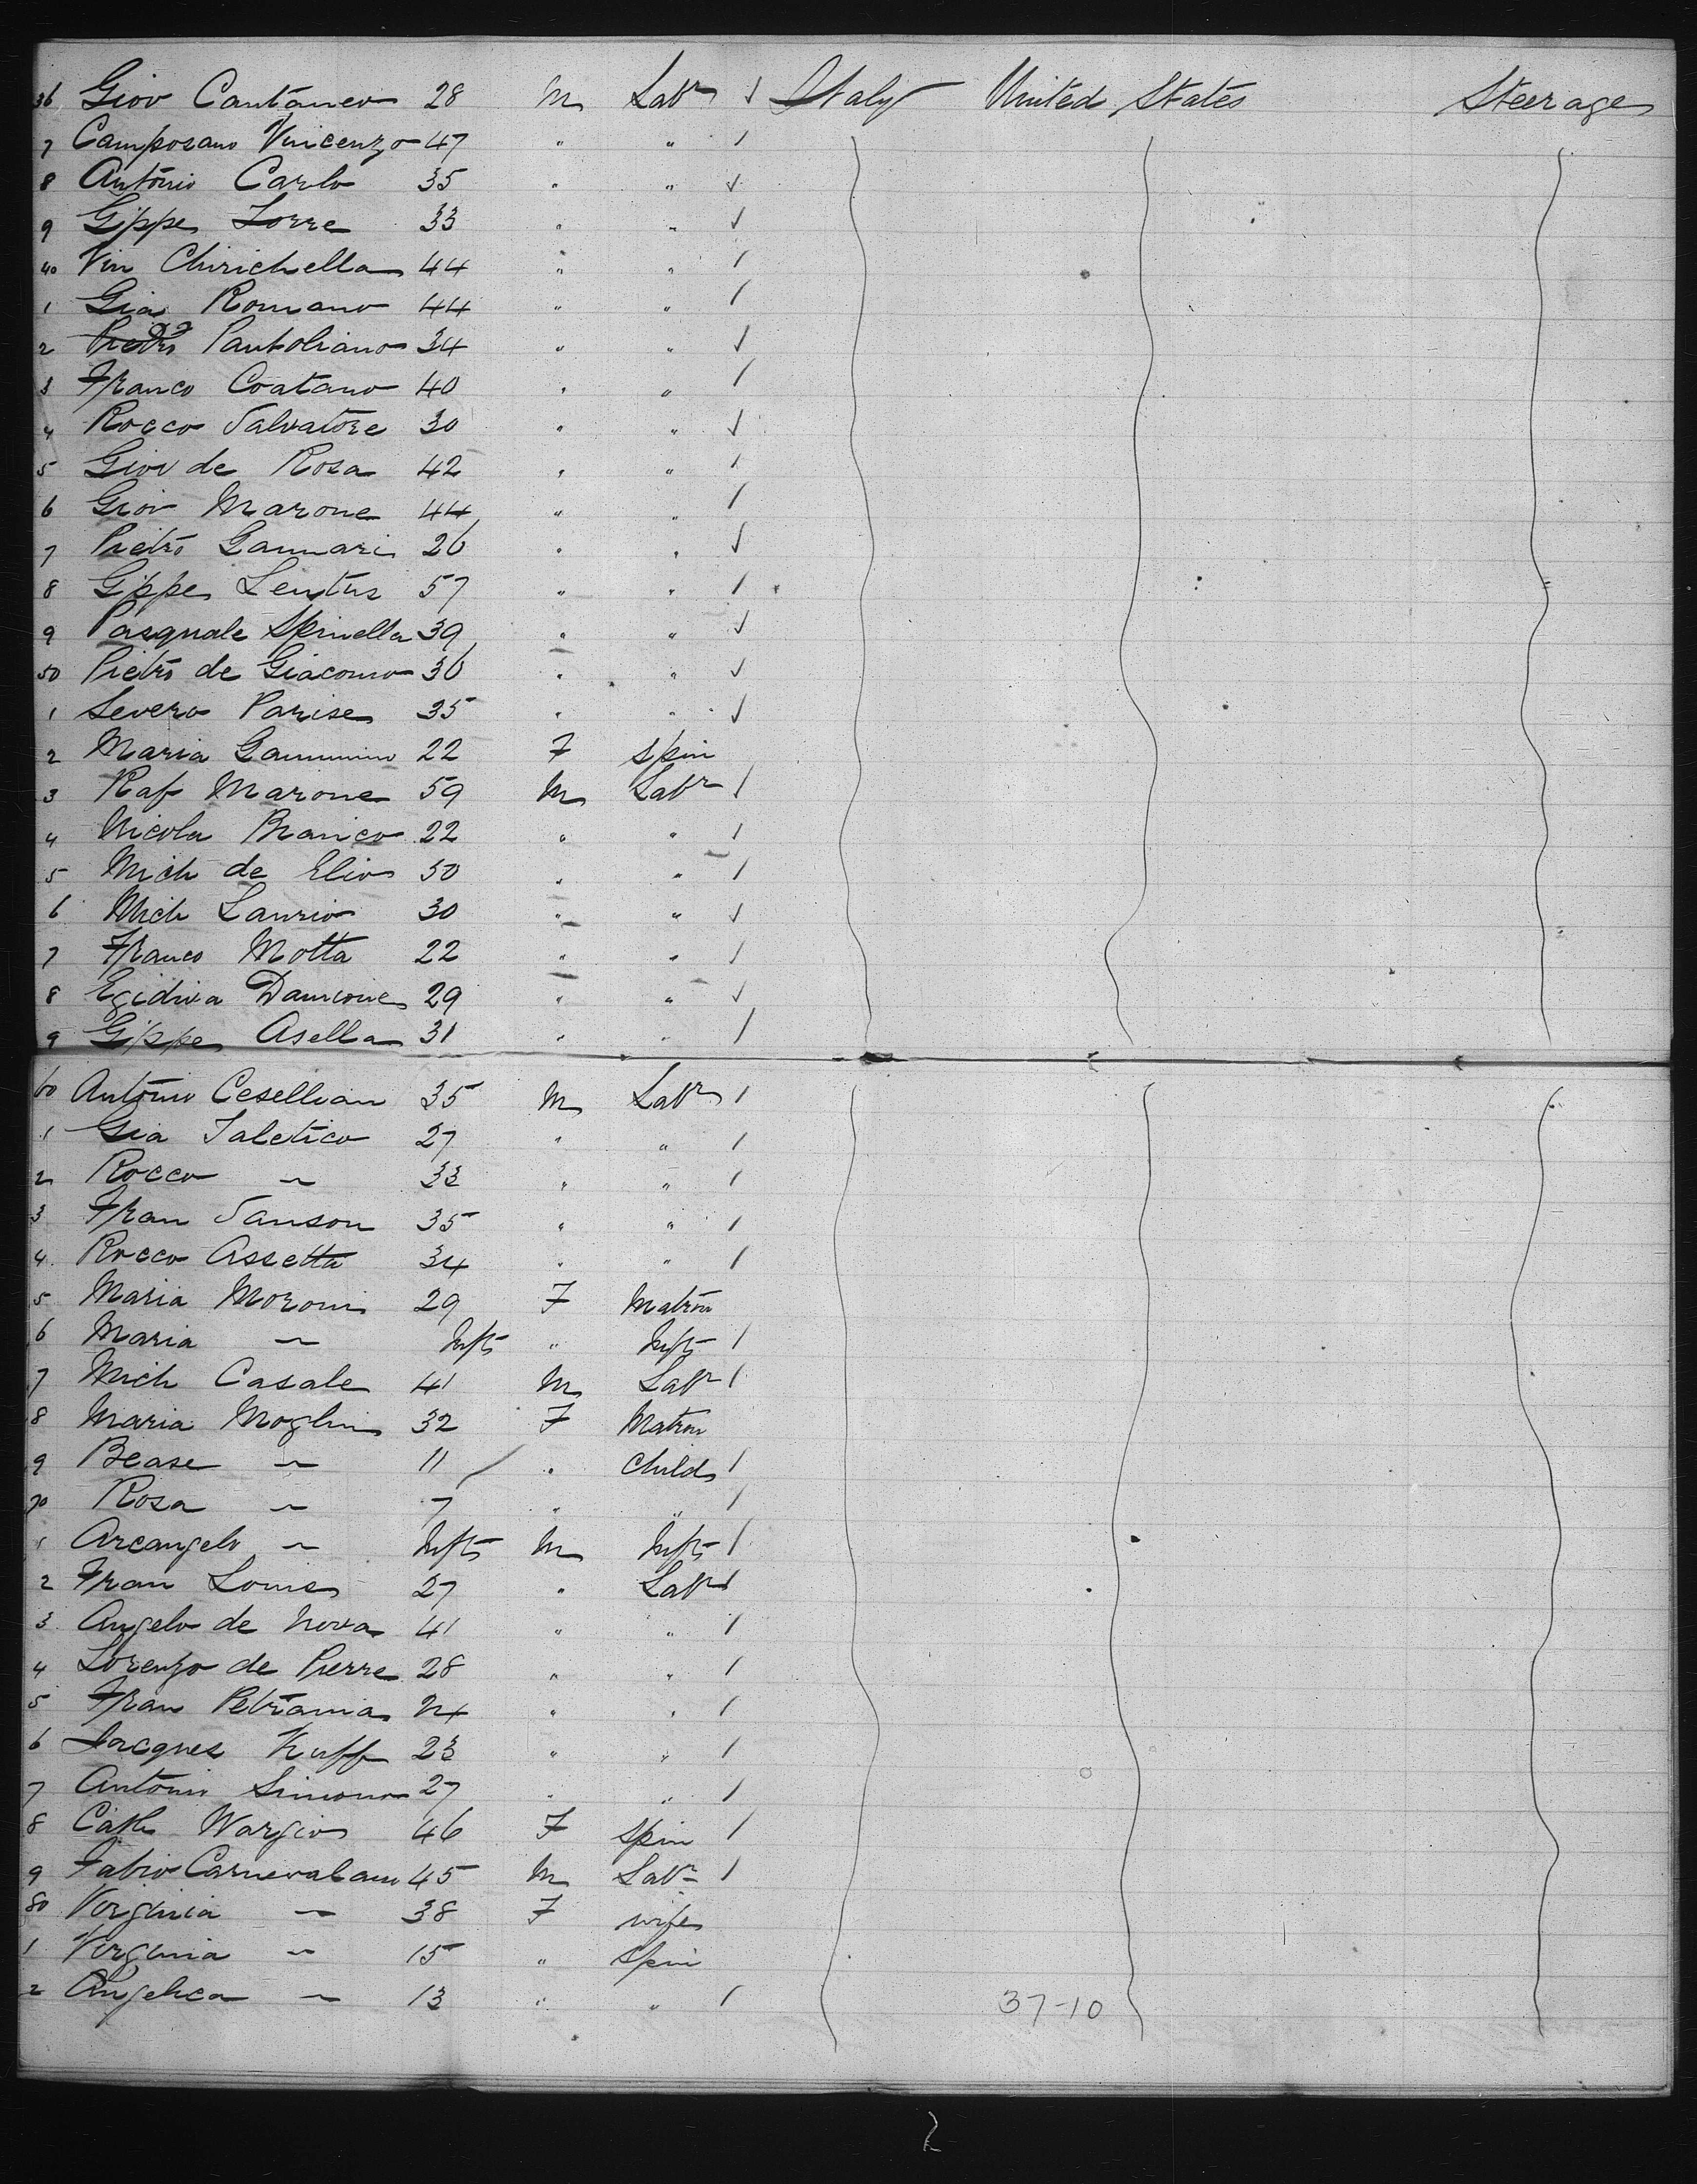 36 Giov Cantaneo 28 m Labr √ Italy United States Steerage
7 Camposano Vincenzo 47 " " /
8 Antonio Carlo 35 " " √
9 Gippe Torre 33 " " √
40 Vin Chirichella 44 " " /
1 Gia Romano 44 " " /
2 Pantoliano 34 " " √
3 Franco Coatano 40 " " /
4 Rocco Salvatore 30 " " √
5 Giov de Rosa 42 " " /
6 Giov Marone 44 " " /
7 Pietro Gannari 26 " " √
8 Gippe Lentus 57 " " /
9 Pasquale Spinella 39 " " √
50 Pietro de Giacomo 36 " " √
1 Severo Parise 35 " " √
2 Maria 22 F Spin
3 Raf Marone 59 m Labr /
4 Nicola Branico 22 " " /
5 Mich de Elio 50 " " /
6 Mich Laurio 30 " " √
7 Franco Motta 22 " " /
8 Egidiva Damione 29 " " √
9 Gippe Asella 31 " " /
60 Antonio Cesellian 35 m Labr /
1 Gia Taletico 27 " " /
2 Rocco ~ 33 " " /
3 Fran Sanson 35 " " /
4 Rocco Assetta 34 " " /
5 Maria Moroni 29 F Matron
6 Maria ~ Inft " Inft /
7 Mich Casale 41 m Labr /
8 Maria Moglin 32 F Matron
9 Bease ~ 11 / " Child /
70 Rosa ~ 7 " " /
1 Arcangelo ~ Inft m Inft /
2 Fran Louis 27 " Labr /
3 Angelo de Nova 41 " " /
4 Lorenzo de Pierre 28 " " /
5 Fran Petrania 24 " " /
6 Jacques Kuff 23 " " /
7 Antonio Simono 27 " " /
8 Cath Wargio 46 F Spin /
9 Fabio Carnevalano 45 m Labr /
80 Virginia ~ 38 F wife
1 Virginia ~ 15 " Spin
2 Angelica ~ 13 " " /
37-10
2